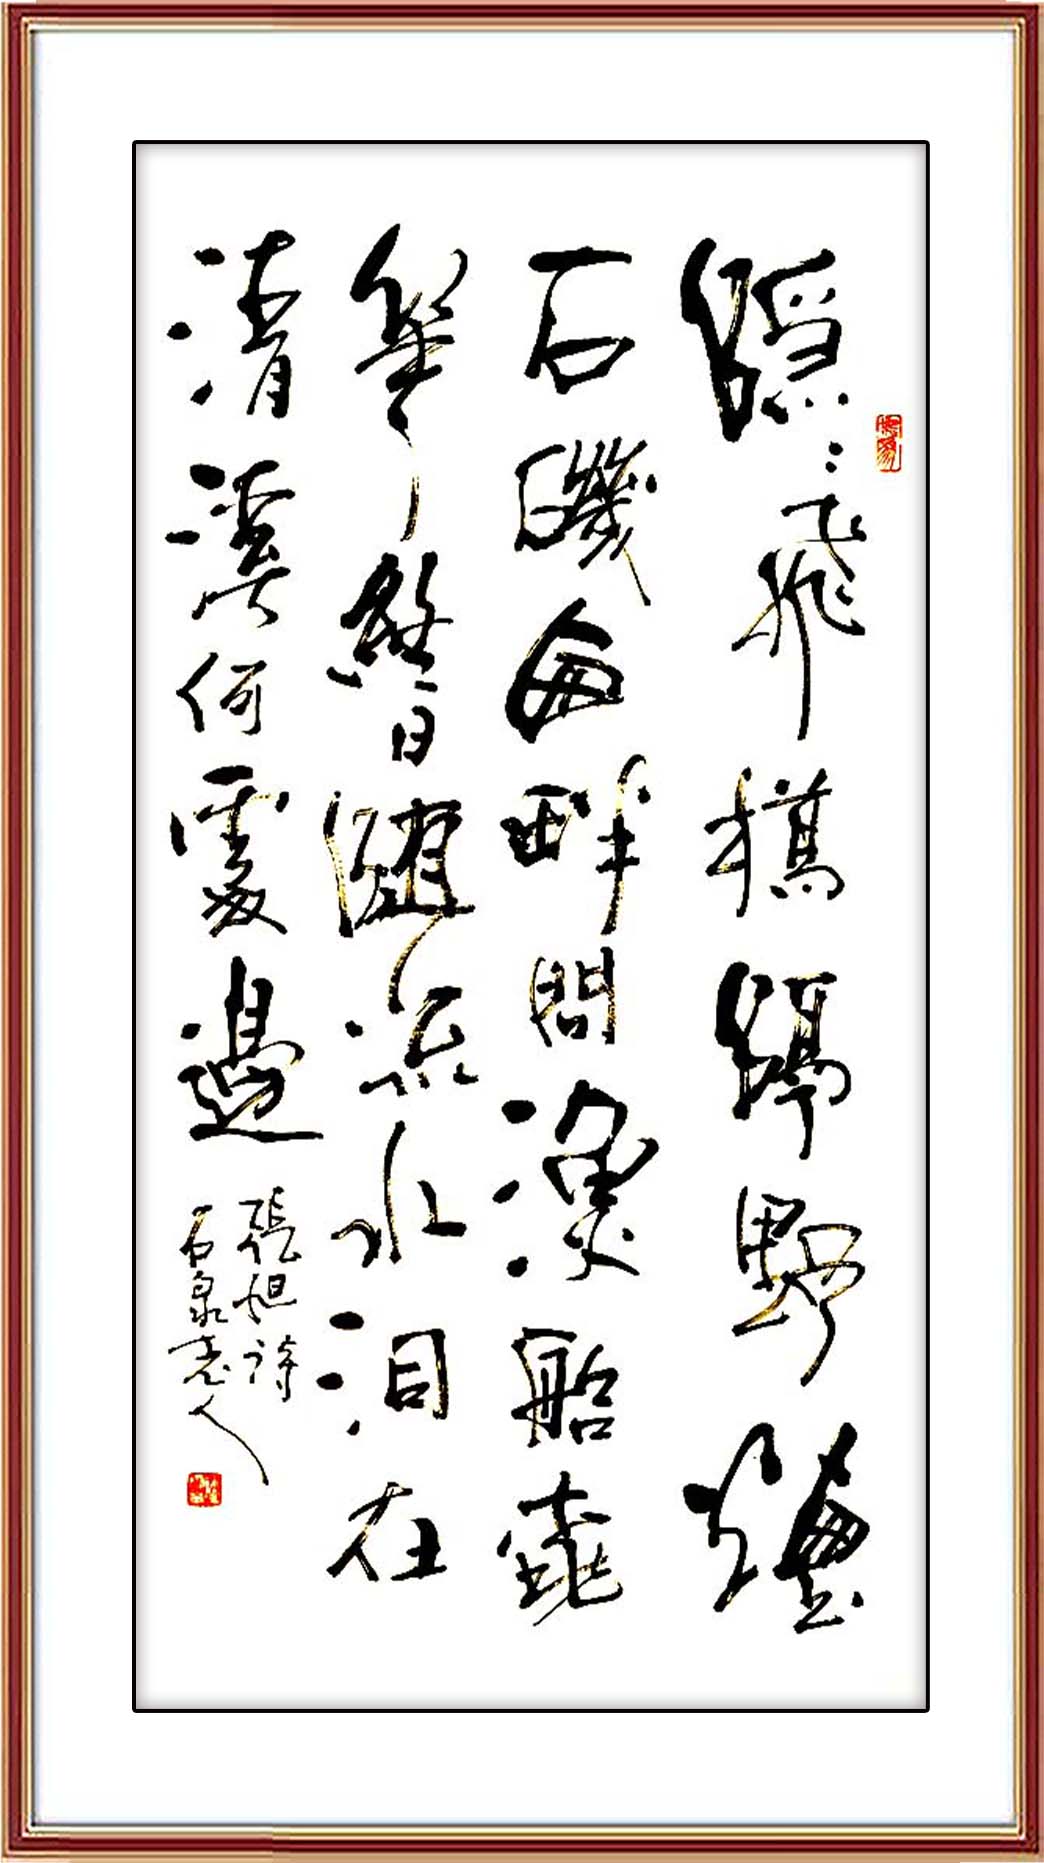 隱〻飛橋隔野煙
石磯西畔問漁船桃
華盡日隨流水洞在
清溪何處邊
張旭詩
石泉老人